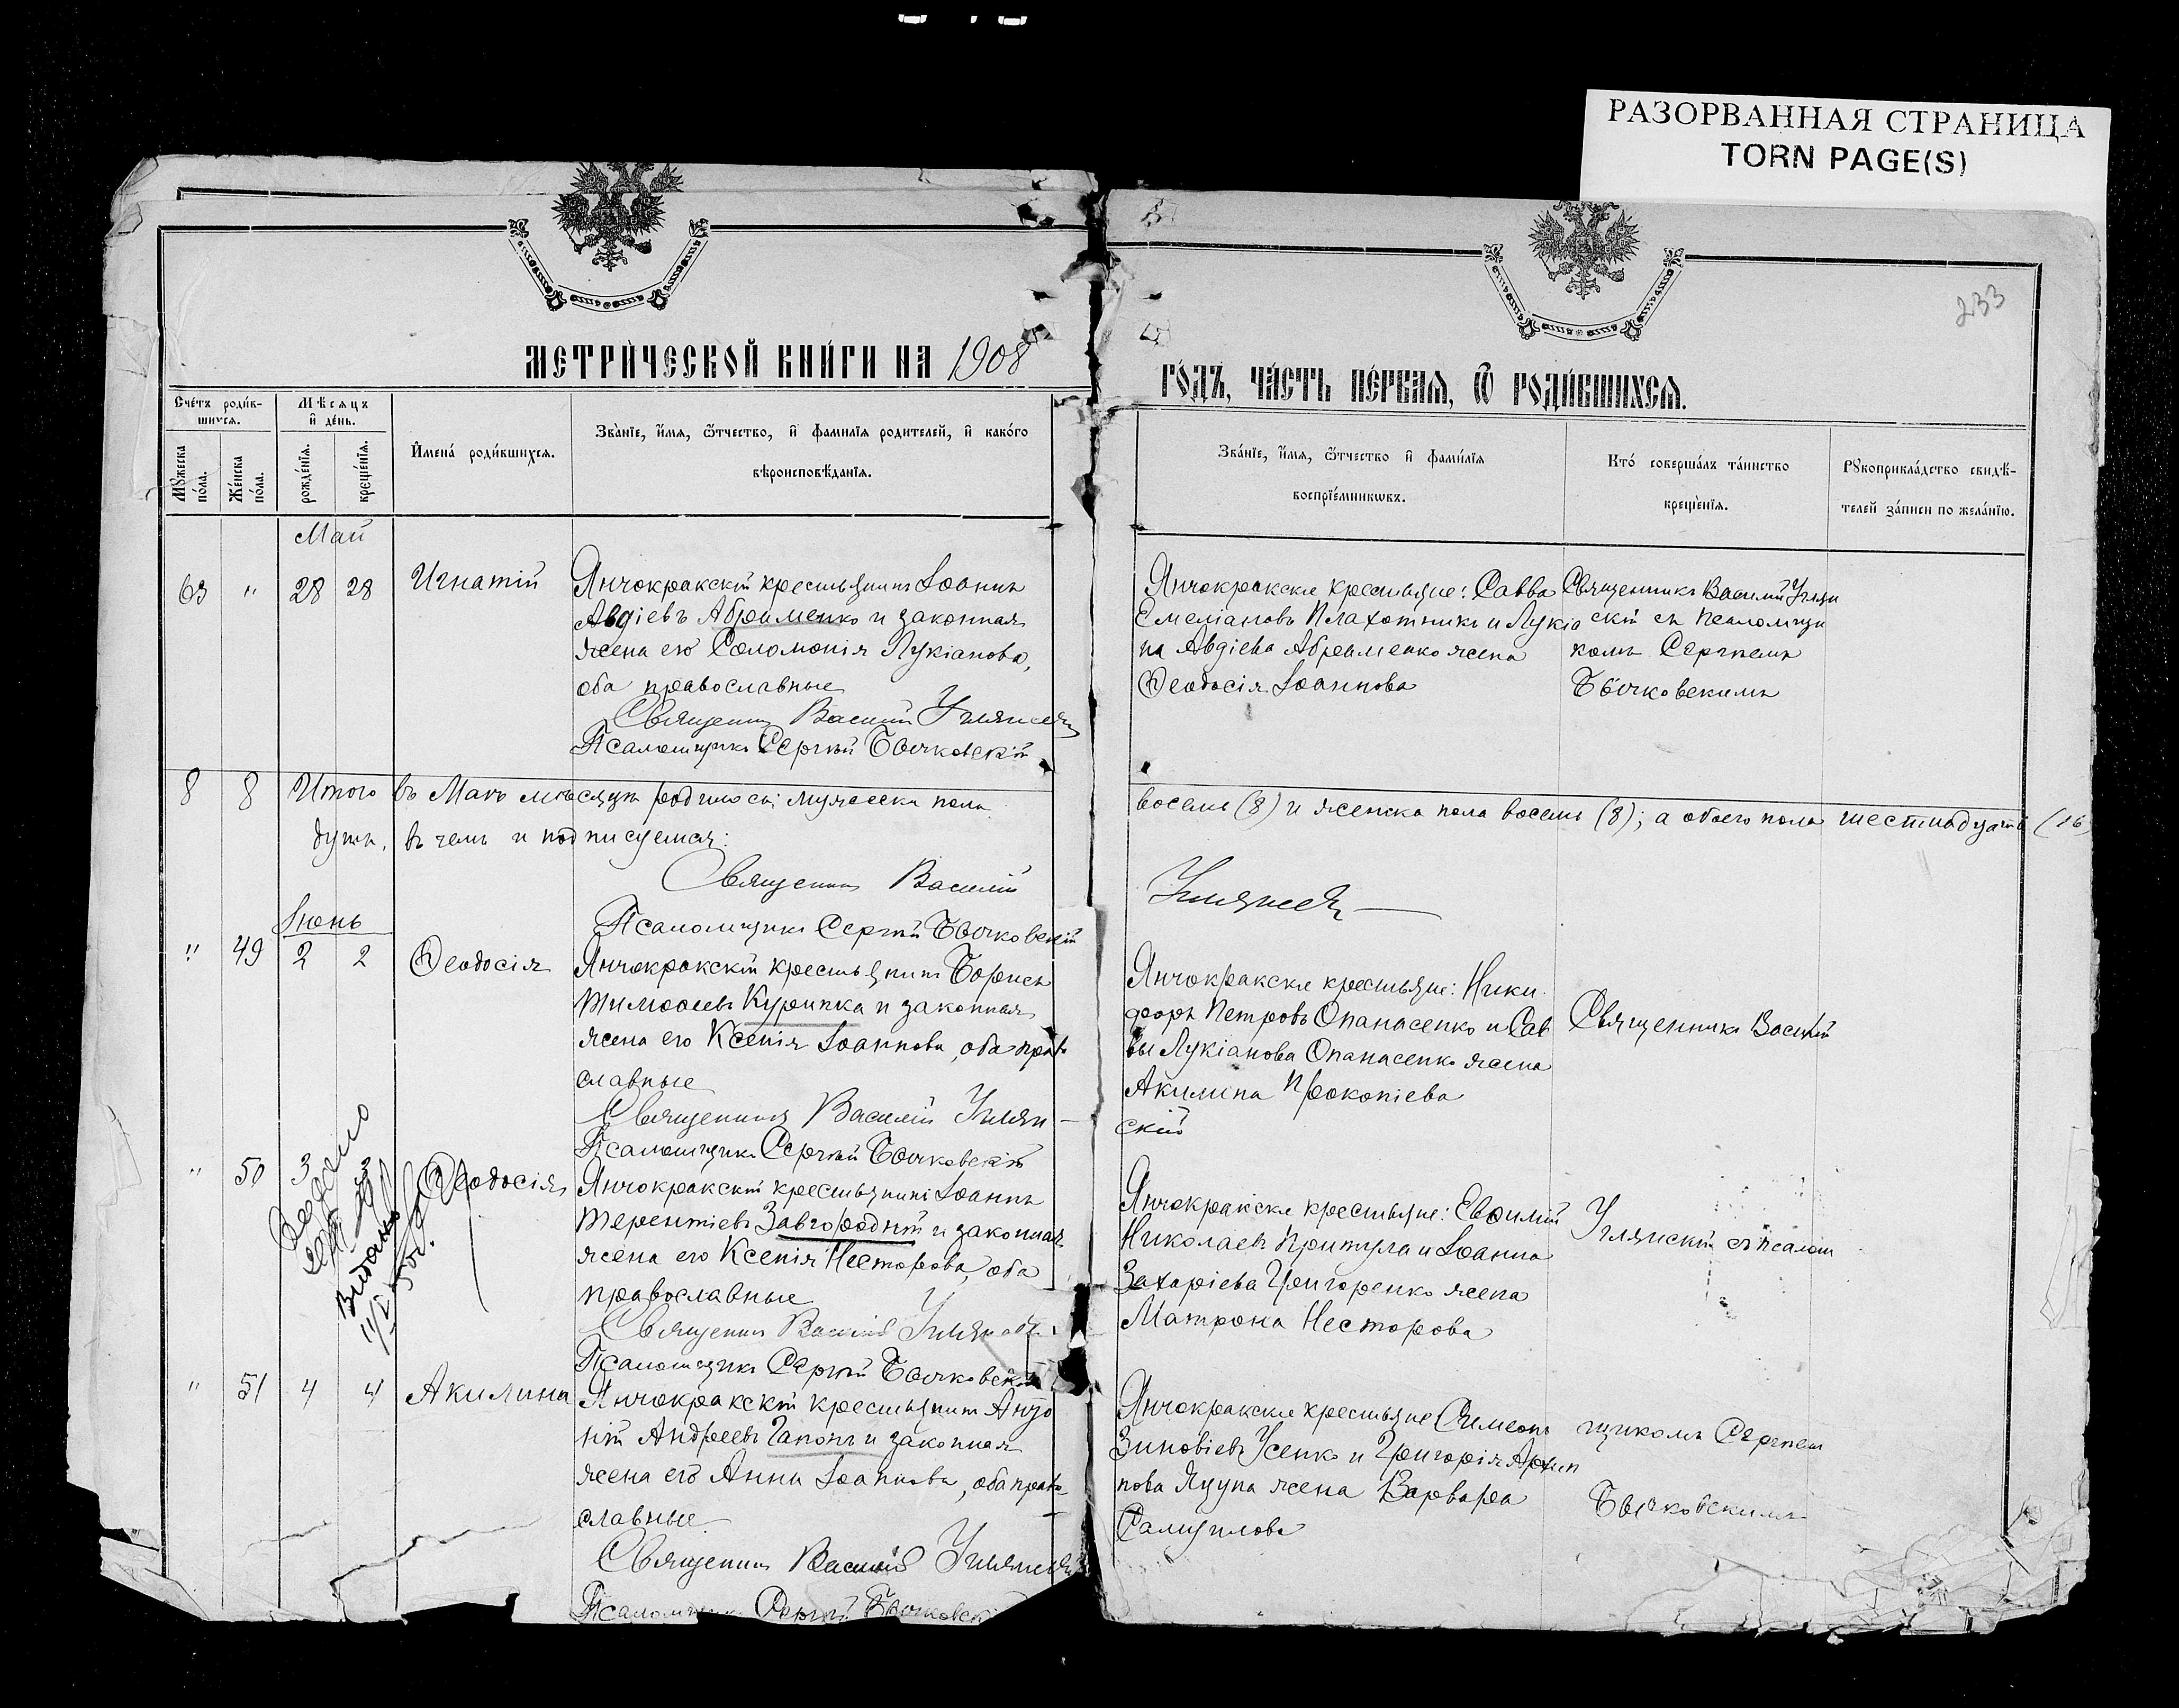 РАЗОРВАННАЯ СТРАНИЦА
TORN PAGE(S)
233
МЕТРИ́ЧЕСКОЙ КНИ́ГИ НА 1908
ГО́ДЪ, ЧА́СТЬ ПЕ́РВАЯ, Ѽ РОДИ́ВШИХСЯ.
Сче́тъ роди́в-
шихся.
Мѣ́сяцъ
и де́нь.
Мꙋ́жеска
по́ла.
Же́нска
по́ла.
рожде́нїя.
креще́нїя.
Имена̀ роди́вшихся.
Зва́нїе, и́мя, ѻ́тчество, и фами́лїя роди́телей, и како́го
вѣроисповѣ́данїя.
Зва́нїе, и́мя, ѻ́тчество и фами́лїя
воспрїе́мникѡвъ.
Кто̀ соверша́лъ та́инство
креще́нїя.
Рꙋкоприкла́дство свидѣ́-
телей за́писи по жела́нїю.
Май
63 " 28 28 Игнатій
Янчокракскій крестьянинъ Іоаннъ
Авдіевъ Абраменко и законная
жена его Соломонія Лукіанова,
оба православные
Священникъ Василій
Псаломщикъ Сергѣй Бычковскій
Янчокракскіе крестьяне: Савва
Емеліановъ Плахотникъ и Лукіа
на Авдіева Абраменко жена
Ѳеодосія Іоаннова
Священникъ Василій
скій съ псаломщи
комъ Сергѣемъ
Бычковскимъ
8 8 Итого въ Маѣ мѣсяцѣ родилось: мужеска пола
восемь (8) и женска пола восемь (8); а обоего пола шестнадцать (16)
душъ, въ чемъ и подписуемся:
Священникъ Василій
Псаломщикъ Сергѣй Бычковскій
Іюнь
" 49 2 2 Ѳеодосія
Янчокракскій крестьянинъ Борисъ
Тимоѳеевъ Курипка и законная
жена его Ксенія Іоаннова, оба право
славные
Священникъ Василій
Псаломщикъ Сергѣй Бычковскій
Янчокракскіе крестьяне: Ники
форъ Петровъ Опанасенко и Сав
вы Лукіанова Опанасенко жена
Акилина Прокопіева
скій
Священникъ Василій
" 50 3 Ѳеодосія
Видано
Янчокракскій крестьянинъ Іоаннъ
Терентіевъ Завгородній и законная
жена его Ксенія Несторова, оба
православные
Священникъ Василій
Псаломщикъ Сергѣй Бычковскій
Янчокракскіе крестьяне: Евѳимій
Николаевъ Притула и Іоанна
Захаріева Григоренко жена
Матрона Несторова
съ псалом
" 51 4 4 Акилина
Янчокракскій крестьянинъ Анто
ній Андреевъ Гапонъ и законная
жена его Анна Іоаннова, оба право
славные
Священникъ Василій
Псаломщикъ Сергѣй Бычковскі
Янчокракскіе крестьяне Симеонъ
Зиновіевъ Усенко и Григорія Архип
пова Яцуна жена Варвара
Самуилова
щикомъ Сергѣем
Бычковскимъ